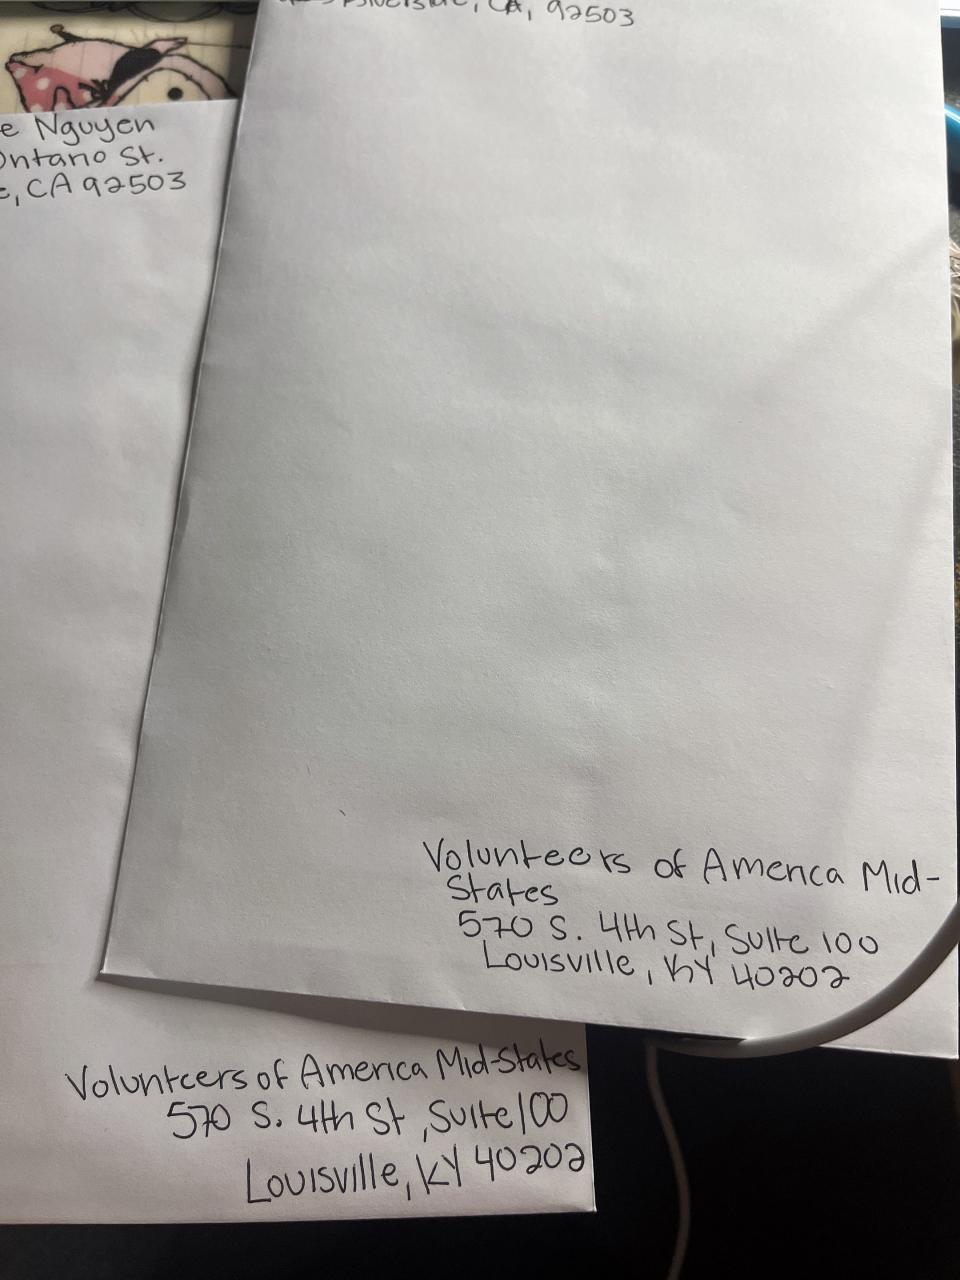 Riverside, CA, 92503
e Nguyen
Ontario St.
e, CA 92503
Volunteers of America Mid-
States
570 S. 4th St, Suite 100
Louisville, KY 40202
Volunteers of America Mid-States
570 S. 4th St, Suite 100
Louisville, KY 40202